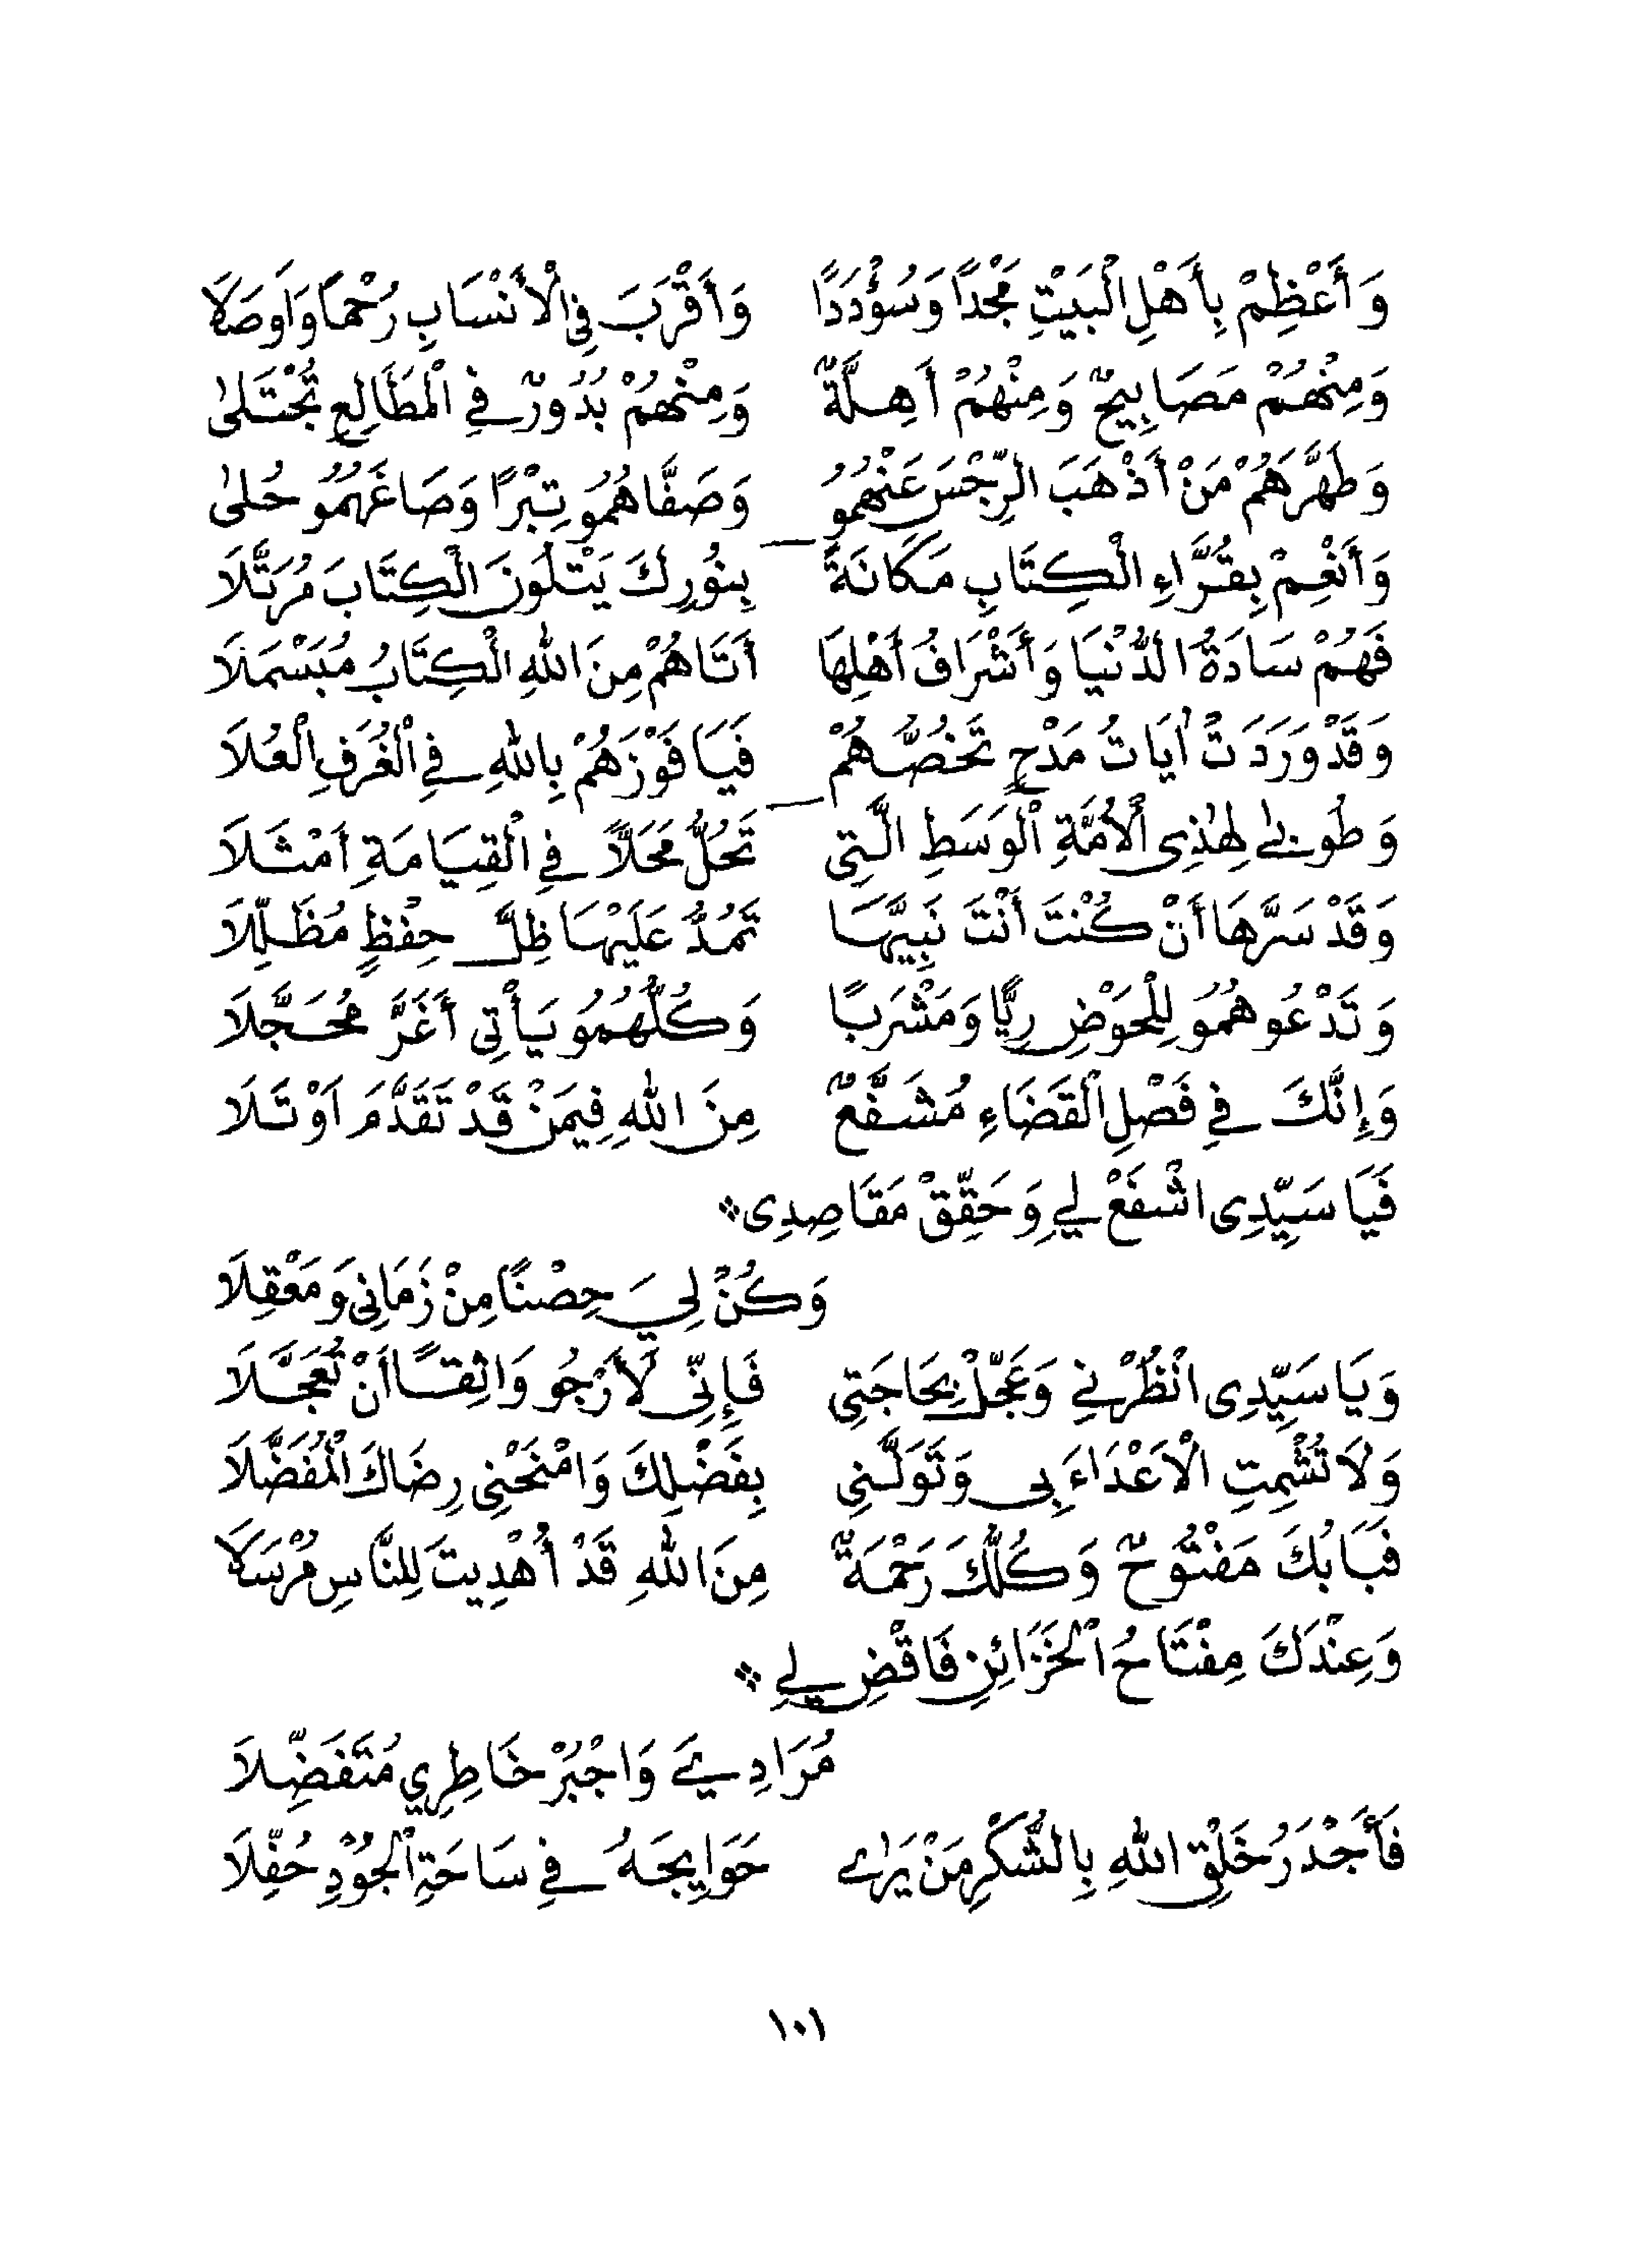 وَأَعْظِمْ بِأَهْلِ الْبَيْتِ مَجْدًا وَسُؤْدَدًا وَأَقْرَبَ فِي الْأَنْسَابِ رُحْمًا وَاَوصَلَا
وَمِنْهُمْ مَصَابِيحٌ وَمِنْهُمْ أَهِلَّةٌ وَمِنْهُمْ بُدُورٌ فِي الْمَطَالِعِ تُجْتَلىٰ
وَطَهَّرَهُمْ مَنْ أَذْهَبَ الرِّجْسَ عَنْهُمُو وَصَفَّاهُمُو تِبْرًا وَصَاغَهُمُو حُلىٰ
وَأَنْعِمْ بِقُرَّاءِ الْكِتَابِ مَكَانَةً بِنُورِكَ يَتْلُونَ الْكِتَابَ مُرَتَّلَا
فَهُمْ سَادَةُ الدُّنْيَا وَأَشْرَافُ أَهْلِهَا أَتَاهُمْ مِنَ اللهِ الْكِتَابُ مُبَسْمَلَا
وَقَدْ وَرَدَتْ اٰيَاتُ مَدْحٍ تَخُصُّهُمْ فَيَا فَوْزَهُمْ بِاللهِ فِي الْغُرَفِ الْعُلَا
وَطُوبىٰ لِهٰذِى الْأُمَّةِ الْوَسَطِ الَّتِى تَحُلُّ مَحَلًّا فِي الْقِيَامَةِ اَمْثَلَا
وَقَدْ سَرَّهَا أَنْ كُنْتَ أَنْتَ نَبِيَّهَا تَمُدُّ عَلَيْهَا ظِلَّ حِفْظٍ مُظَلِّلَا
وَتَدْعُو هُمُو لِلْحَوْضِ رِيًّا وَمَشْرَبًا وَكُلُّهُمُو يَأْتِى أَغَرَّ مُحَجَّلَا
وَإِنَّكَ فِي فَصْلِ الْقَضَاءِ مُشَفَّعٌ مِنَ اللهِ فِيمَنْ قَدْ تَقَدَّمَ اَوْ تَلَا
فَيَا سَيِّدِى اشْفَعْ لِي وَحَقِّقْ مَقَاصِدِى ❖
وَكُنْ لِيَ حِصْنًا مِنْ زَمَانِى وَمَعْقِلَا
وَيَا سَيِّدِى انْظُرْنِي وَعَجِّلْ بِحَاجَتِى فَإِنِّى لَأَرْجُو وَاثِقًا أَنْ تُعَجَّلَا
وَلَا تُشْمِتِ الْاَعْدَاءَ بِى وَتَوَلَّنِى بِفَضْلِكَ وَامْنَحْنِى رِضَاكَ الْمُفَضَّلَا
فَبَابُكَ مَفْتُوحٌ وَكُلُّكَ رَحْمَةٌ مِنَ اللهِ قَدْ أُهْدِيتَ لِلنَّاسِ مُرْسَلَا
وَعِنْدَكَ مِفْتَاحُ الْخَزَائِنِ فَاقْضِ لِي ❖
مُرَادِيَ وَاجْبُرْ خَاطِرِي مُتَفَضِّلَا
فَأَجْدَرُ خَلْقِ اللهِ بِالشُّكْرِ مَنْ يَرٰى حَوَايِجَهُ فِي سَاحَةِ الْجُوْدِ حُفَّلَا
١٠١